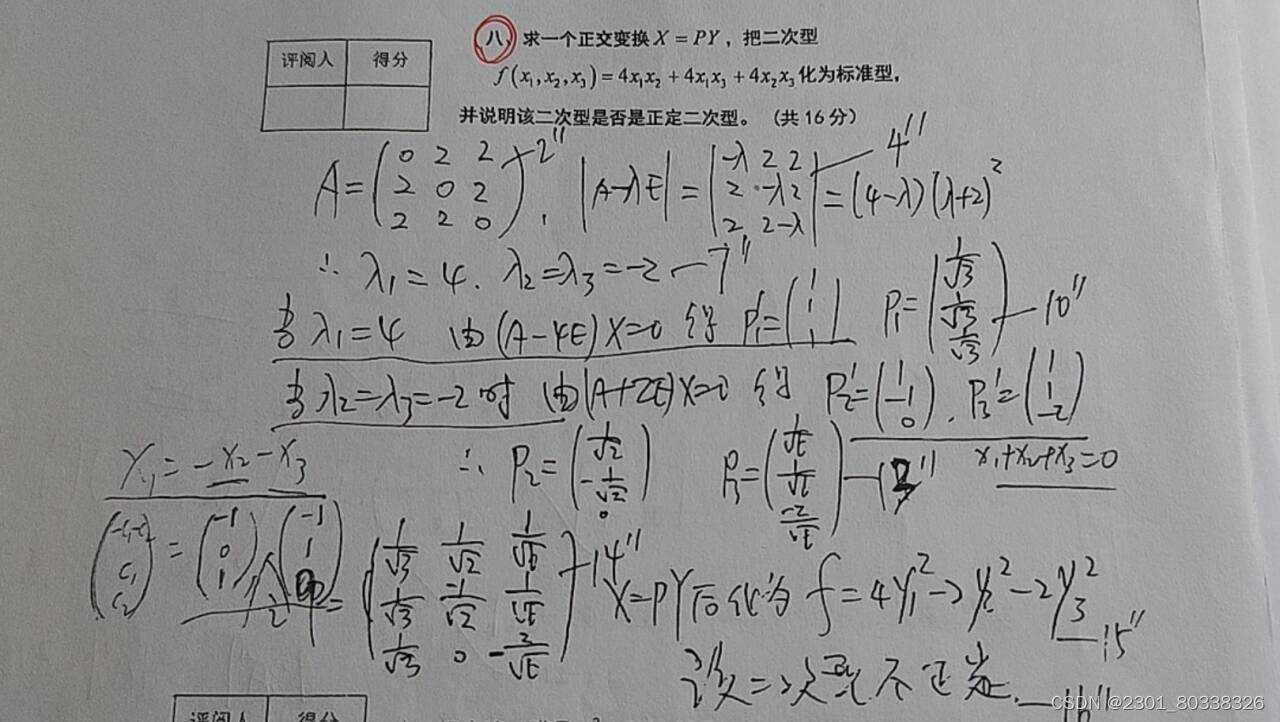 评阅人 得分
八、求一个正交变换 X = PY，把二次型
f(x₁,x₂,x₃) = 4x₁x₂ + 4x₁x₃ + 4x₂x₃ 化为标准型，
并说明该二次型是否是正定二次型。（共16分）
A = (0 2 2; 2 0 2; 2 2 0) 2'' , |A-λE| = |-λ 2 2; 2 -λ 2; 2 2 -λ| 4'' = (4-λ)(λ+2)²
∴ λ₁=4. λ₂=λ₃=-2 — 7''
当 λ₁=4 由 (A-4E)X=0 得 P₁'=(1; 1; 1) P₁=(1/√3; 1/√3; 1/√3) — 10''
当 λ₂=λ₃=-2 时 由 (A+2E)X=0 得 P₂'=(1; -1; 0), P₃'=(1; 1; -2)
x₁+x₂+x₃=0
x₁=-x₂-x₃ ∴ P₂=(1/√2; -1/√2; 0) P₃=(1/√6; 1/√6; -2/√6) — 13''
(-c₁-c₂; c₁; c₂) = (-1; 0; 1) (-1; 1; 0)
P = (1/√3 1/√2 1/√6; 1/√3 -1/√2 1/√6; 1/√3 0 -2/√6) — 14''
X=PY 后化为 f=4y₁²-2y₂²-2y₃² — 15''
该二次型不正定. — 16''
评阅人 得分
CSDN @2301_80338326